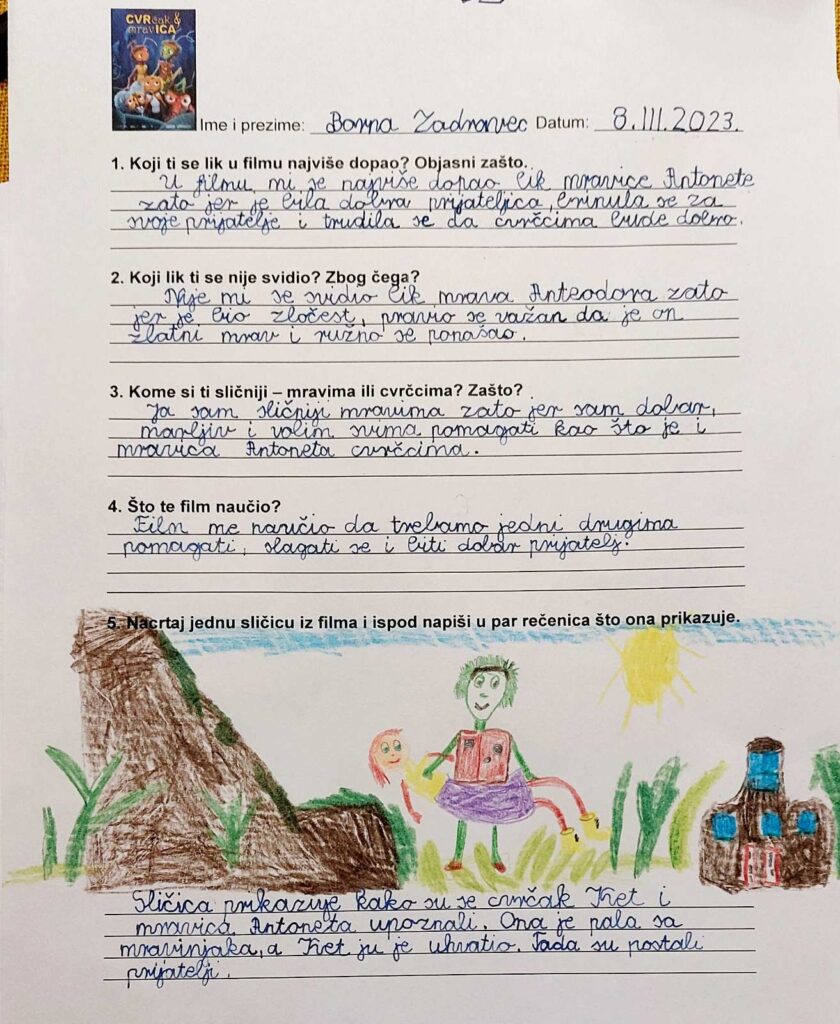 CVRčak &
mravICA
Ime i prezime: Borna Zadravec Datum: 8.III.2023.
1. Koji ti se lik u filmu najviše dopao? Objasni zašto.
U filmu mi se najviše dopao lik mravice Antonete
zato jer je bila dobra prijateljica, brinula se za
svoje prijatelje i trudila se da cvrčcima bude dobro.
2. Koji lik ti se nije svidio? Zbog čega?
Nije mi se svidio lik mrava Anteodora zato
jer je bio zločest, pravio se važan da je on
zlatni mrav i ružno se ponašao.
3. Kome si ti sličniji – mravima ili cvrčcima? Zašto?
Ja sam sličniji mravima zato jer sam dobar,
marljiv i volim svima pomagati kao što je i
mravica Antoneta cvrčcima.
4. Što te film naučio?
Film me naučio da trebamo jedni drugima
pomagati, slagati se i biti dobar prijatelj.
5. Nacrtaj jednu sličicu iz filma i ispod napiši u par rečenica što ona prikazuje.
Sličica prikazuje kako su se cvrčak Ket i
mravica Antoneta upoznali. Ona je pala sa
mravinjaka, a Ket ju je uhvatio. Tada su postali
prijatelji.